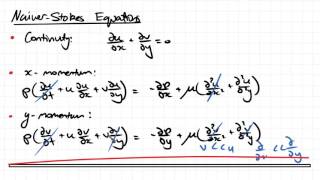 Naiver-Stokes Equations
• Continuity: ∂u/∂x + ∂v/∂y = 0
• x-momentum:
ρ(∂u/∂t + u ∂u/∂x + v ∂u/∂y) = -∂P/∂x + μ(∂²u/∂x² + ∂²u/∂y²)
• y-momentum:
ρ(∂v/∂t + u ∂v/∂x + v ∂v/∂y) = -∂P/∂y + μ(∂²v/∂x² + ∂²v/∂y²)
v << u ∂/∂x << ∂/∂y